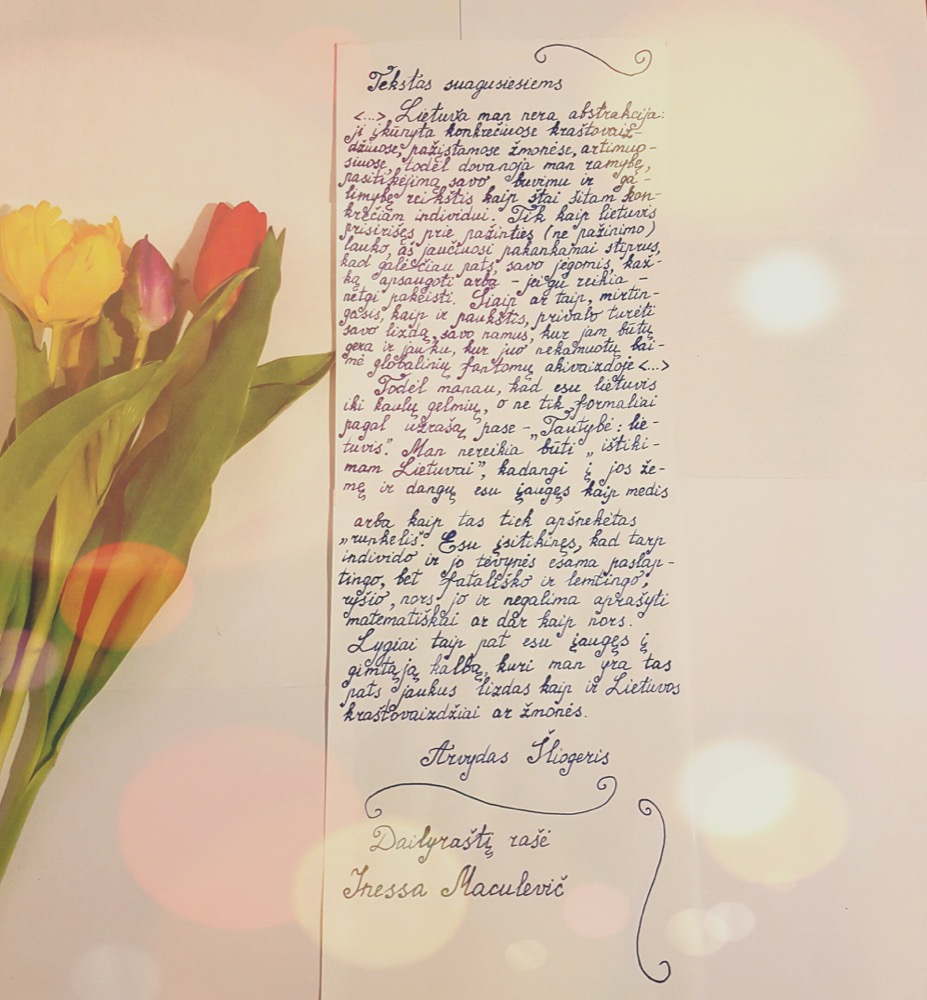 Tekstas suagusiesiems
<...> Lietuva man nėra abstrakcija:
ji įkūnyta konkrečiuose kraštovaiz-
džiuose, pažįstamose žmonėse, artimuo-
siuose, todėl dovanoja man ramybę,
pasitikėjimą savo buvimu ir ga-
limybę reikštis kaip štai šitam kon-
krečiam individui. Tik kaip lietuvis
prisirišęs prie pažinties (ne pažinimo)
lauko, aš jaučiuosi pakankamai stiprus,
kad galėčiau pats, savo jėgomis, kaž-
ką apsaugoti arba - jeigu reikia
netgi pakeisti. Šiaip ar taip, mirtin-
gasis, kaip ir paukštis, privalo turėti
savo lizdą, savo namus, kur jam būtų
gera ir jauku, kur juo nekamuotų bai-
mė globalinių fantomų akivaizdoje <...>
Todėl manau, kad esu lietuvis
iki kaulų gelmių, o ne tik formaliai
pagal užrašą pase - „Tautybė: lie-
tuvis". Man nereikia būti „ištiki-
mam Lietuvai", kadangi į jos že-
mę ir dangų esu įaugęs kaip medis
arba kaip tas tiek apšnekėtas
„runkelis". Esu įsitikinęs, kad tarp
individo ir jo tėvynės esama paslap-
tingo, bet fatališko ir lemtingo,
ryšio, nors jo ir negalima aprašyti
matematiškai ar dar kaip nors.
Lygiai taip pat esu įaugęs į
gimtąją kalbą, kuri man yra tas
pats jaukus lizdas kaip ir Lietuvos
kraštovaizdžiai ar žmonės.
Arvydas Šliogeris
Dailyraštį rašė
Inessa Maculevič